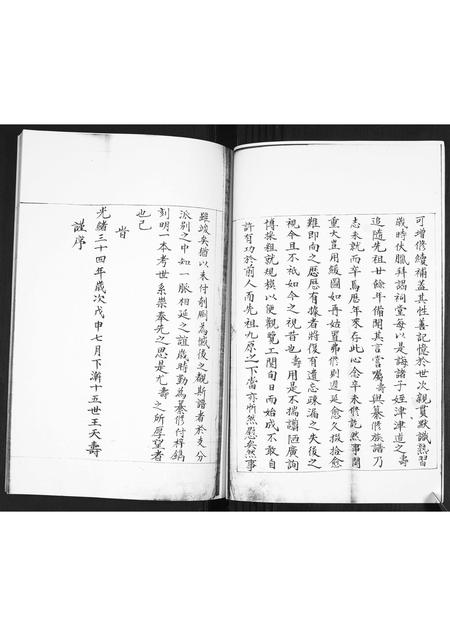 可增修續補蓋其性善記憶於世次親貫默識熟習
歲時伏臘拜謁祠堂每以是誨諸子姪津津道之壽
追隨先祖廿餘年備聞其言嘗屬壽與纂修族譜乃
志未就而卒焉歷年來存此心念辛未修訖然事關
重大豈用緩圖如再姑置弗修則遲延愈久掇拾愈
難即向之歷歷有據者將復有遺忘疎漏之失後之
視今且不祇如今之視昔也壽用是不揣譾陋廣詢
博採粗就規模以便觀覽工閱旬日而始成不敢自
許有功於前人而先祖九原之下當亦怡然慰矣然事
雖竣矣猶以未付剞劂為憾後之觀斯譜者於支分
派別之中知一脈相延之誼歲時勤為纂修付梓鐫
刻明一本考世系崇奉先之思是尤壽之所厚望者
也已
旹
光緒三十四年歲次戊申七月下澣十五世王天壽
謹序